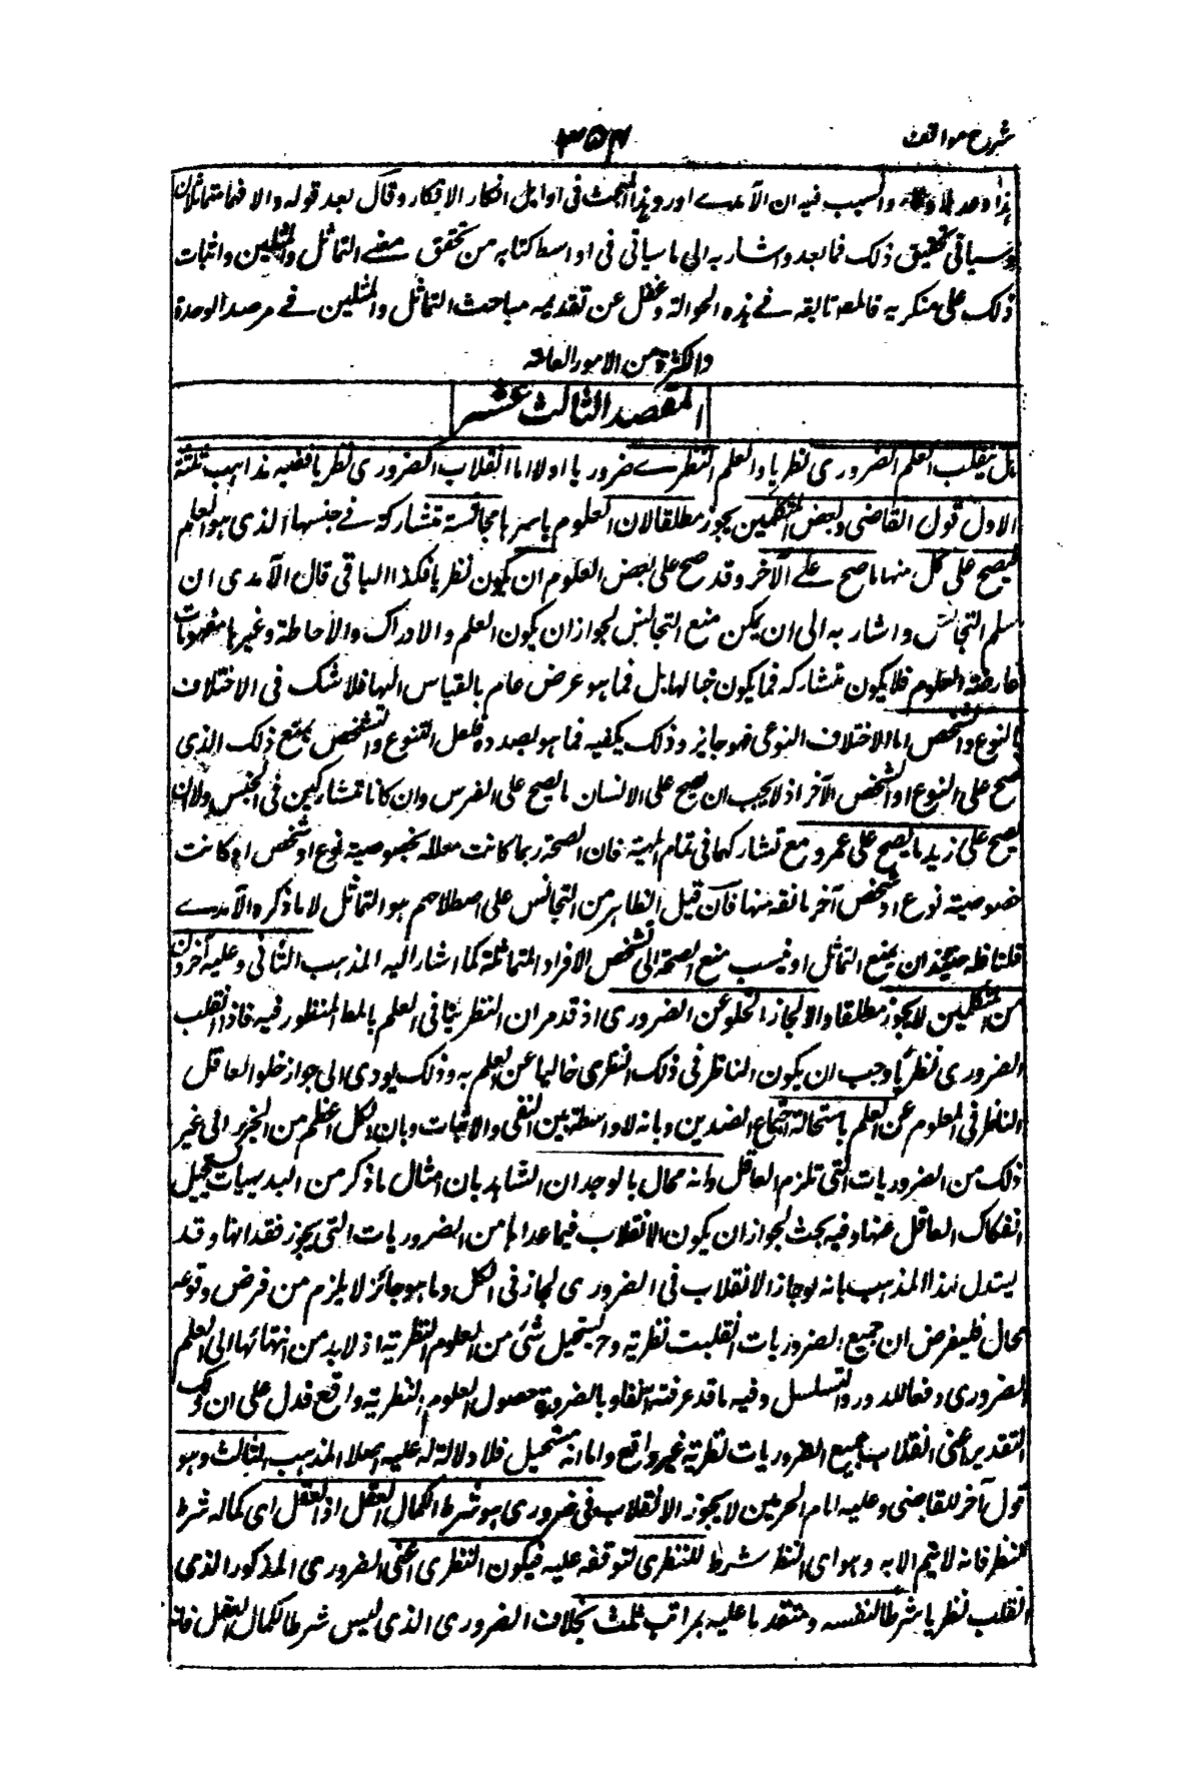 شرح مواقف
٣٥٤
هذا وعد بلا وفاء والسبب فيه ان الآمدے اورد هذا المبحث فى اوايل افكار الابكار وقال بعد قوله والا فهما متماثلان
وسياتى تحقيق ذلك فما بعد واشار به الى ما سياتى فى اواسط كتابه من تحقق معنے التماثل والمثلين واثبات
ذلك على منكريه فالمصـ تابعه فے هذه الحوالة وغفل عن تقديمه مباحث التماثل والمثلين فے مرصد الوحدة
والكثرة من الامور العامة
المقصد الثالث عشر
هل ينقلب العلم الضرورى نظريا والعلم النظرے ضروريا اولا اما انقلاب الضرورى نظريا ففيه مذاهب ثلثة
الاول قول القاضى وبعض المتكلمين يجوز مطلقا لان العلوم باسرها مجانسة متشاركة فے جنسها الذى هو العلم
فيصح على كل منها ما صح علے الآخر وقد صح على بعض العلوم ان يكون نظريا فكذا الباقى قال الآمدى ان
سلم التجانس واشار به الى ان يمكن منع التجانس لجواز ان يكون العلم والادراك والاحاطة وغيرها مفهومات
عارضة للعلوم فلا يكون متشاركه فما يكون جنسا لها بل فما هو عرض عام بالقياس اليها فلا شك فى الاختلاف
بالنوع والشخص اما الاختلاف النوعى فهو جايز وذلك يكفيه فما هو بصدده فلعل التنوع والتشخص يمنع ذلك الذى
صح على النوع او الشخص الآخر اذ لا يجب ان يصح على الانسان ما يصح على الفرس وان كانا متشاركين فى الجنس ولا ان
يصح على زيد ما يصح على عمرو مع تشاركهما فى تمام المهية فان الصحة ربما كانت معللة بخصوصية نوع او شخص او كانت
خصوصية نوع او شخص آخر مانعة منها فان قيل الظاهر من التجانس على اصطلاحهم هو التماثل لا ما ذكره الآمدے
قلنا فله حينئذ ان يمنع التماثل او ينسب منع الصحة الى تشخص الافراد المتماثلة كما اشار اليه المذهب الثانى وعليه آخرون
من المتكلمين لا يجوز مطلقا والا لجاز الخلو عن الضرورى اذ قد مر ان النظر ينافى العلم بالمط المنظور فيه فاذا انقلب
الضرورى نظريا وجب ان يكون الناظر فى ذلك النظرى خاليا عن العلم به وذلك يودى الى جواز خلو العاقل
الناظر فى المعلوم عن العلم باستحالة اجتماع الضدين وبانه لا واسطة بين النفى والاثبات وبان الكل اعظم من الجزء الى غير
ذلك من الضروريات التى تلزم العاقل وانه محال بالوجدان الشاهد بان امثال ما ذكر من البديهيات يستحيل
انفكاك العاقل عنها وفيه بحث لجواز ان يكون الانقلاب فيما عداها من الضروريات التى يجوز فقدانها وقد
يستدل لهذا المذهب بانه لو جاز الانقلاب فى الضرورى لجاز فى الكل وما هو جائز لا يلزم من فرض وقوعه
محال فليفرض ان جميع الضروريات انقلبت نظرية وح يستحيل شئ من العلوم النظرية اذ لا بد من انتهائها الى العلم
الضرورى دفعا للدور والتسلسل وفيه ما قد عرفته آنفا وبالضرورة حصول العلوم النظرية واقع فدل على ان ذلك
التقدير اعنى انقلاب جميع الضروريات نظرية غير واقع واما انه مستحيل فلا دلالة له عليه اصلا المذهب الثالث وهو
قول آخر للقاضى وعليه امام الحرمين لا يجوز الانقلاب فى ضرورى هو شرط لكمال العقل اذ العقل اى كماله شرط
للنظر فانه لا يتم الا به وهو اى النظر شرط للنظرى لتوقفه عليه فيكون النظرى اعنى الضرورى المذكور الذى
انقلب نظريا شرطا لنفسه ومتقدما عليه بمراتب ثلث بخلاف الضرورى الذى ليس شرطا لكمال العقل فانه